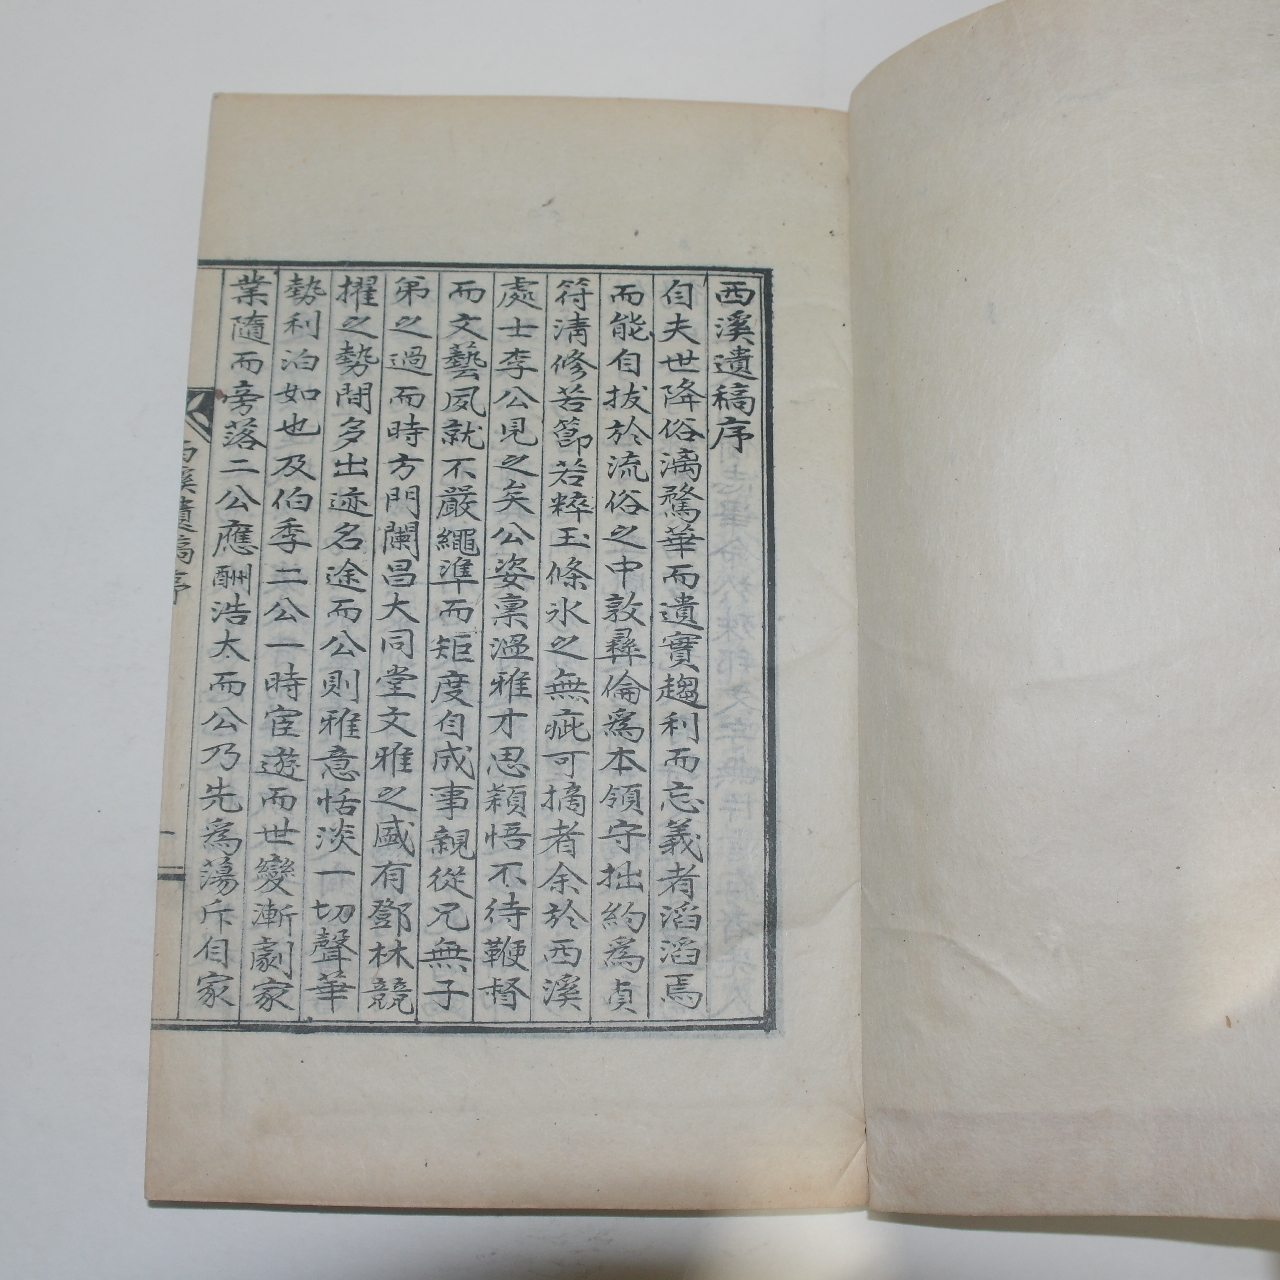 西溪遺稿序
自夫世降俗漓騖華而遺實趨利而忘義者滔滔焉
而能自拔於流俗之中敦彛倫爲本領守拙約爲貞
符淸修苦節若粹玉條氷之無疵可摘者余於西溪
處士李公見之矣公姿稟溫雅才思穎悟不待鞭督
而文藝夙就不嚴繩準而矩度自成事親從兄無子
弟之過而時方門闌昌大同堂文雅之盛有鄧林競
擢之勢間多出迹名途而公則雅意恬淡一切聲華
勢利泊如也及伯季二公一時宦遊而世變漸劇家
業隨而旁落二公應酬浩大而公乃先爲蕩斥自家
西溪遺稿序
一